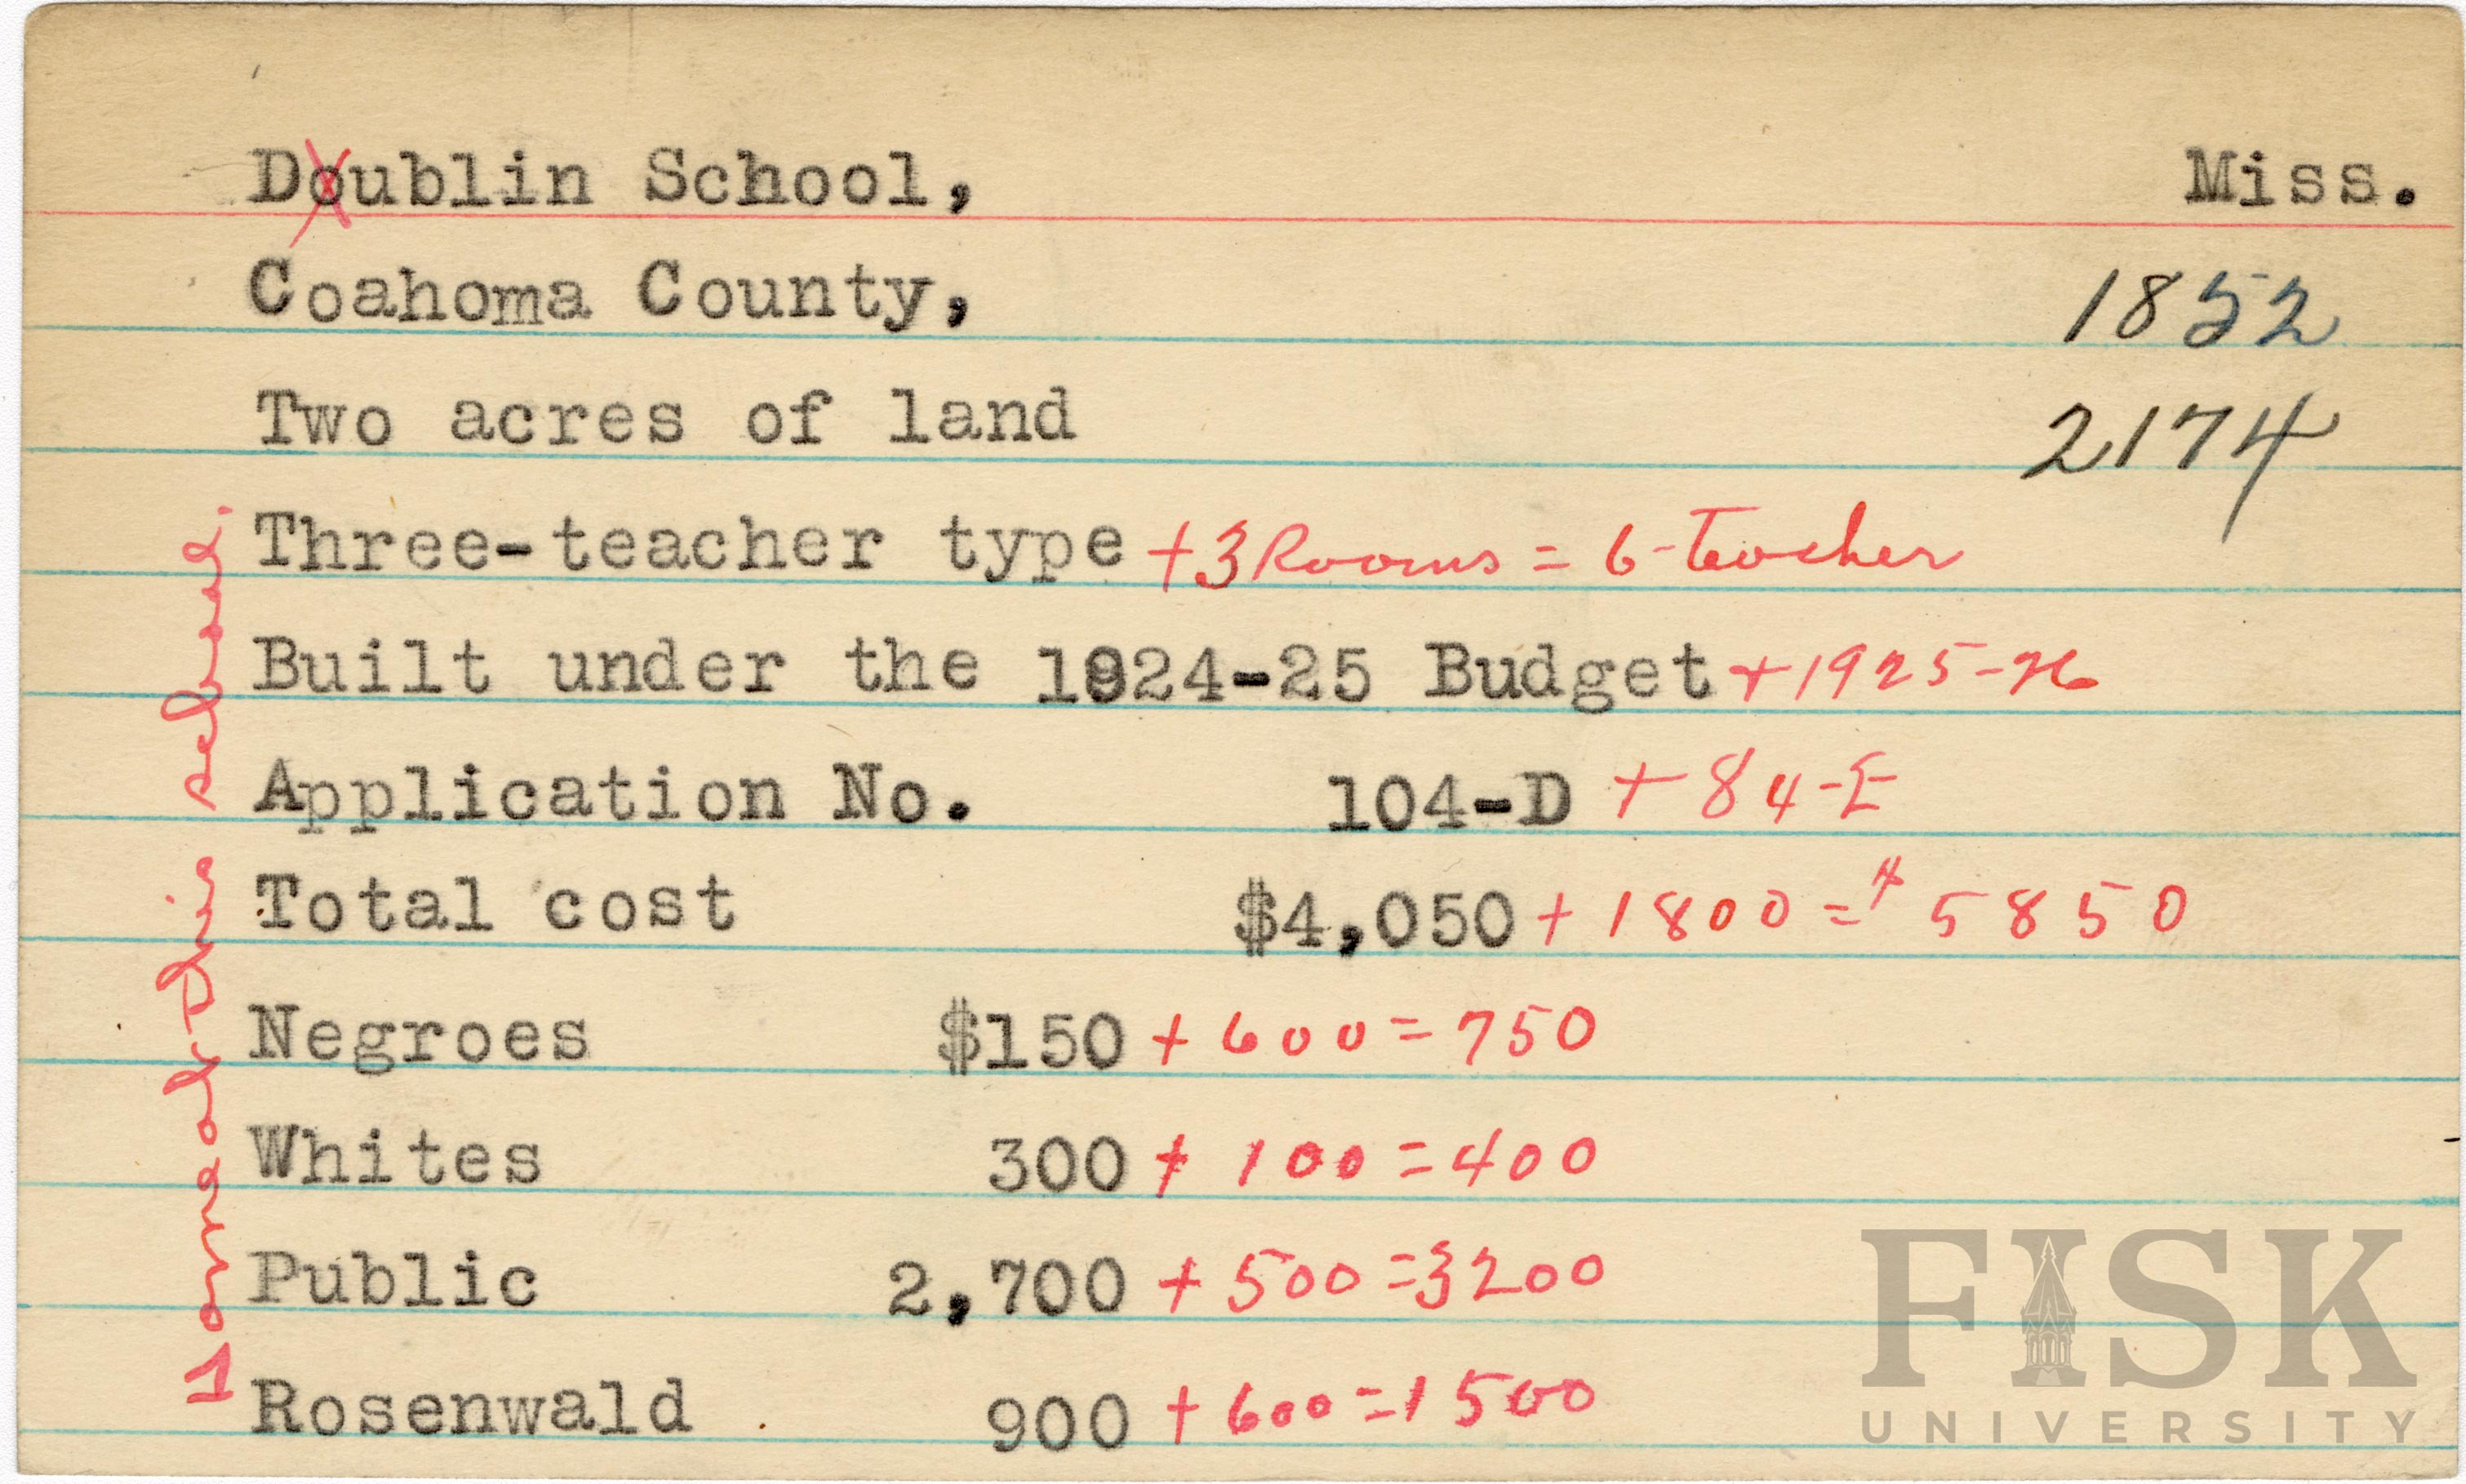 Doublin School, Miss.
Coahoma County, 1852
Two acres of land 2174
Three-teacher type +3 Rooms = 6-Teacher
Built under the 1924-25 Budget +1925-26
Application No. 104-D + 84-E
Total cost $4,050 + 1800 = $5850
Negroes $150 + 600 = 750
Whites 300 + 100 = 400
Public 2,700 + 500 = 3200
Rosenwald 900 + 600 = 1500
this school.
FISK
UNIVERSITY